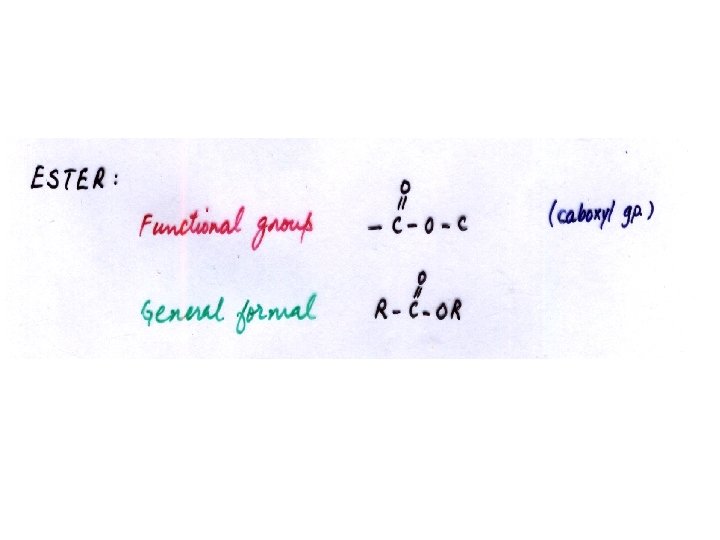 ESTER:
O
||
Functional group - C - O - C (caboxyl gp.)
O
||
General formal R - C - OR